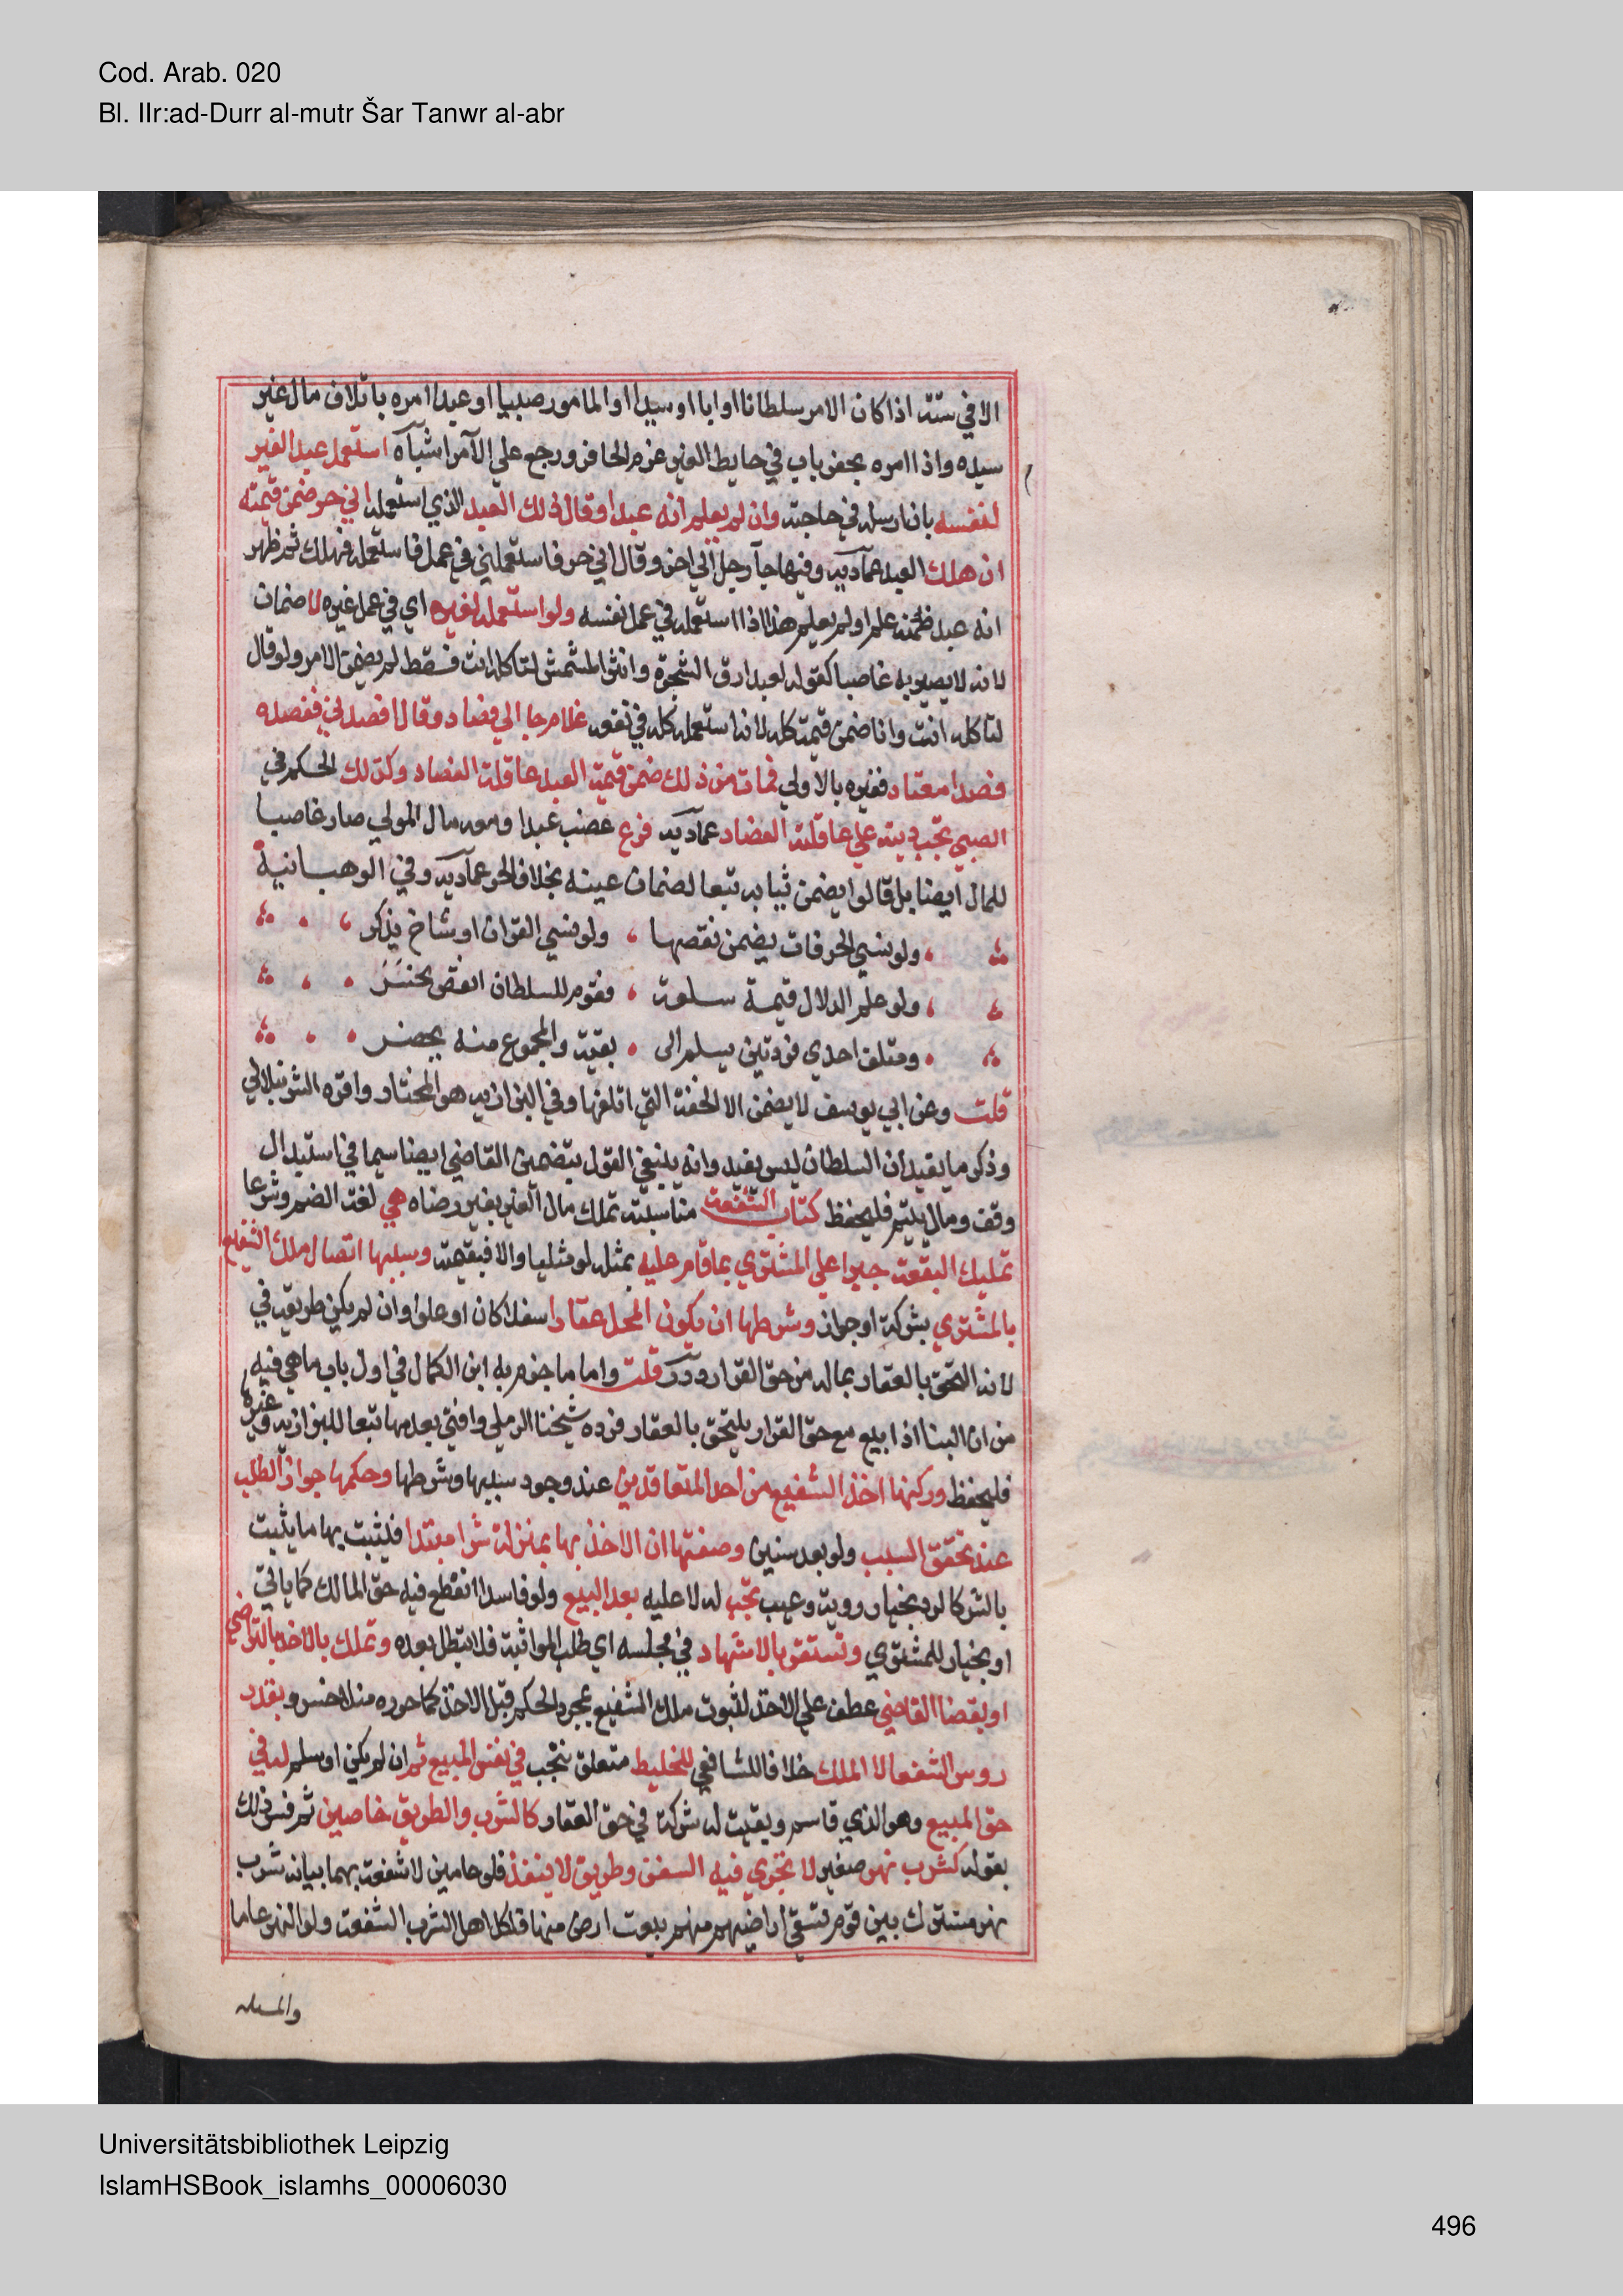 Cod. Arab. 020
Bl. IIr:ad-Durr al-mutr Šar Tanwr al-abr
الا في ستة اذا كان الامر سلطانا او ابا او سيدا او المامور صبيا او عبدا امره باتلاف مال غير
سيده واذا امره بحفر باب في حايط الغير غرم الحافر ورجع علي الآمر اشباه استعمل عبد الغير
لنفسه بان ارسله في حاجته وان لم يعلم انه عبد او قال ذلك العبد الذي استعمله اني حر ضمن قيمته
ان هلك العبد عمادية وفيها جآ رجل الي اخر وقال اني حر فاستعملني في عمل فاستعمله فهلك ثم ظهر
انه عبد ضمنه علم او لم يعلم هذا اذا استعمله في عمل نفسه ولو استعمله لغيره اي في عمل غيره لا ضمان
لانه لا يصير به غاصبا كقوله لعبد ارق الشجرة وانثر المشمش لتاكله انت فسقط لم يضمن الامر ولو قال
لتاكله انت وانا ضمن قيمته كله لانه استعمله كله في نفعه غلام جا الي فصاد وقال افصدني ففصده
فصدا معتاد فغيره بالاولي فمات من ذلك ضمن قيمة العبد عاقلة الفصاد وكذلك الحكم في
الصبي تجب ديته علي عاقلة الفصاد عمادية فرع غصب عبدا ومعه مال المولي صار غاصبا
للمال ايضا بل قالوا يضمن ثيابه تبعا لضمان عينه بخلاف الحر عمادية وفي الوهبانية
ولو نسي الحرفات يضمن نقصها ولو نسي القران او شاخ يذكر
ولو علم الدلال قيمة سلعة فقوم للسلطان انقص يخسر
ومتلف احدي فردتين يسلم الى بقية والمجموع منه يحضر
قلت وعن ابي يوسف لا يضمن الا الخفة التي اتلفها وفي البزازية هو المختار واقره الشرنبلالي
وذكر ما يفيد ان السلطان ليس بقيد وانه ينبغي القول بتضمين القاضي ايضا سيما في استبدال
وقف ومال يتيم فليحفظ كتاب الشفعة مناسبته تملك مال الغير بغير رضاه هي لغة الضم وشرعا
تمليك البقعة جبرا علي المشتري بما قام عليه بمثله لو مثليا والا فبقيمته وسببها اتصال ملك الشفيع
بالمشتري بشركة او جوار وشرطها ان يكون المحل عقارا سفلا كان او علوا وان لم يكن طريقه في
لانه التحق بالعقار بماله من حق القرار درر قلت واما ما جزم به ابن الكمال في اول باب ما هي فيه
من ان البنا اذا بيع مع حق القرار يلتحق بالعقار فرده شيخنا الرملي وافتي بعدمها تبعا للبزازية وغيره
فليحفظ وركنها اخذ الشفيع من احد المتعاقدين عند وجود سببها وشرطها وحكمها جواز الطلب
عند تحقق السبب ولو بعد سنين وصفتها ان الاخذ بها بمنزلة شرا مبتدا فيثبت بها ما يثبت
بالشر كالرد بخيار روية وعيب تجب له لا عليه بعد البيع ولو فاسدا انقطع فيه حق المالك كما ياتي
او بخيار للمشتري وتستقر بالاشهاد في مجلسه اي طلب المواثبة فلا تبطل بعده وتملك بالاخذ بالتراضي
او بقضا القاضي عطف علي الاخذ لثبوت ملك الشفيع بمجرد الحكم قبل الاخذ كما حرره منلا خسرو بقدر
روس الشفعا لا الملك خلافا للشافعي للخليط متعلق بتجب في نفس المبيع ثم ان لم يكن او سلم له في
حق المبيع وهو الذي قاسم وبقيت له شركة في حق العقار كالشرب والطريق خاصين ثم فسر ذلك
بقوله كشرب نهر صغير لا تجري فيه السفن وطريق لا ينفذ فلو عامين لا شفعة بهما بيانه شرب
نهر مشترك بين قوم تسقي اراضيهم منهم بيعت ارض منها فلكل اهل الشرب الشفعة ولو النهر عاما
والمسله
Universitätsbibliothek Leipzig
IslamHSBook_islamhs_00006030
496